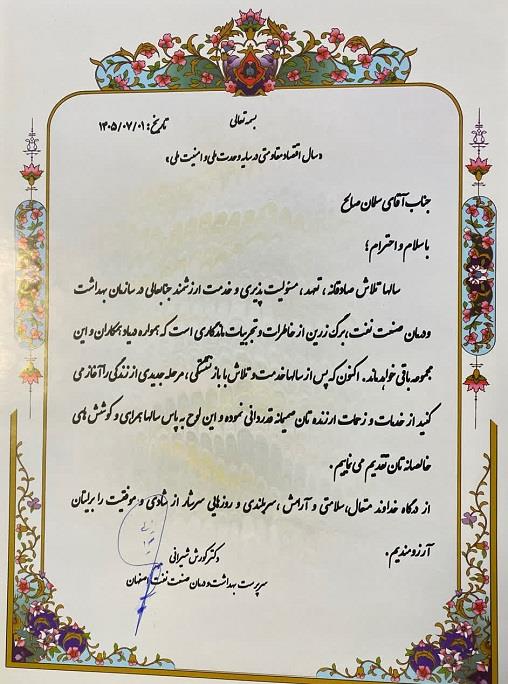 بسمه تعالی
تاریخ: ۱۴۰۵/۰۷/۰۱
«سال اقتصاد مقاومتی در سایه وحدت ملی و امنیت ملی»
جناب آقای سلمان صالح
با سلام و احترام؛
سالها تلاش صادقانه، تعهد، مسئولیت پذیری و خدمت ارزشمند جنابعالی در سازمان بهداشت
و درمان صنعت نفت، برگ زرین از خاطرات و تجربیات ماندگاری است که همواره در یاد همکاران و این
مجموعه باقی خواهد ماند. اکنون که پس از سالها خدمت و تلاش با بازنشستگی، مرحله جدیدی از زندگی را آغاز می
کنید از خدمات و زحمات ارزنده تان صمیمانه قدردانی نموده و این لوح به پاس سالها همراهی و کوشش های
خالصانه تان تقدیم می نماییم.
از درگاه خداوند متعال، سلامتی و آرامش، سربلندی و روزهایی سرشار از شادی و موفقیت را برایتان
آرزومندیم.
دکتر کورش شیرانی
سرپرست بهداشت و درمان صنعت نفت اصفهان